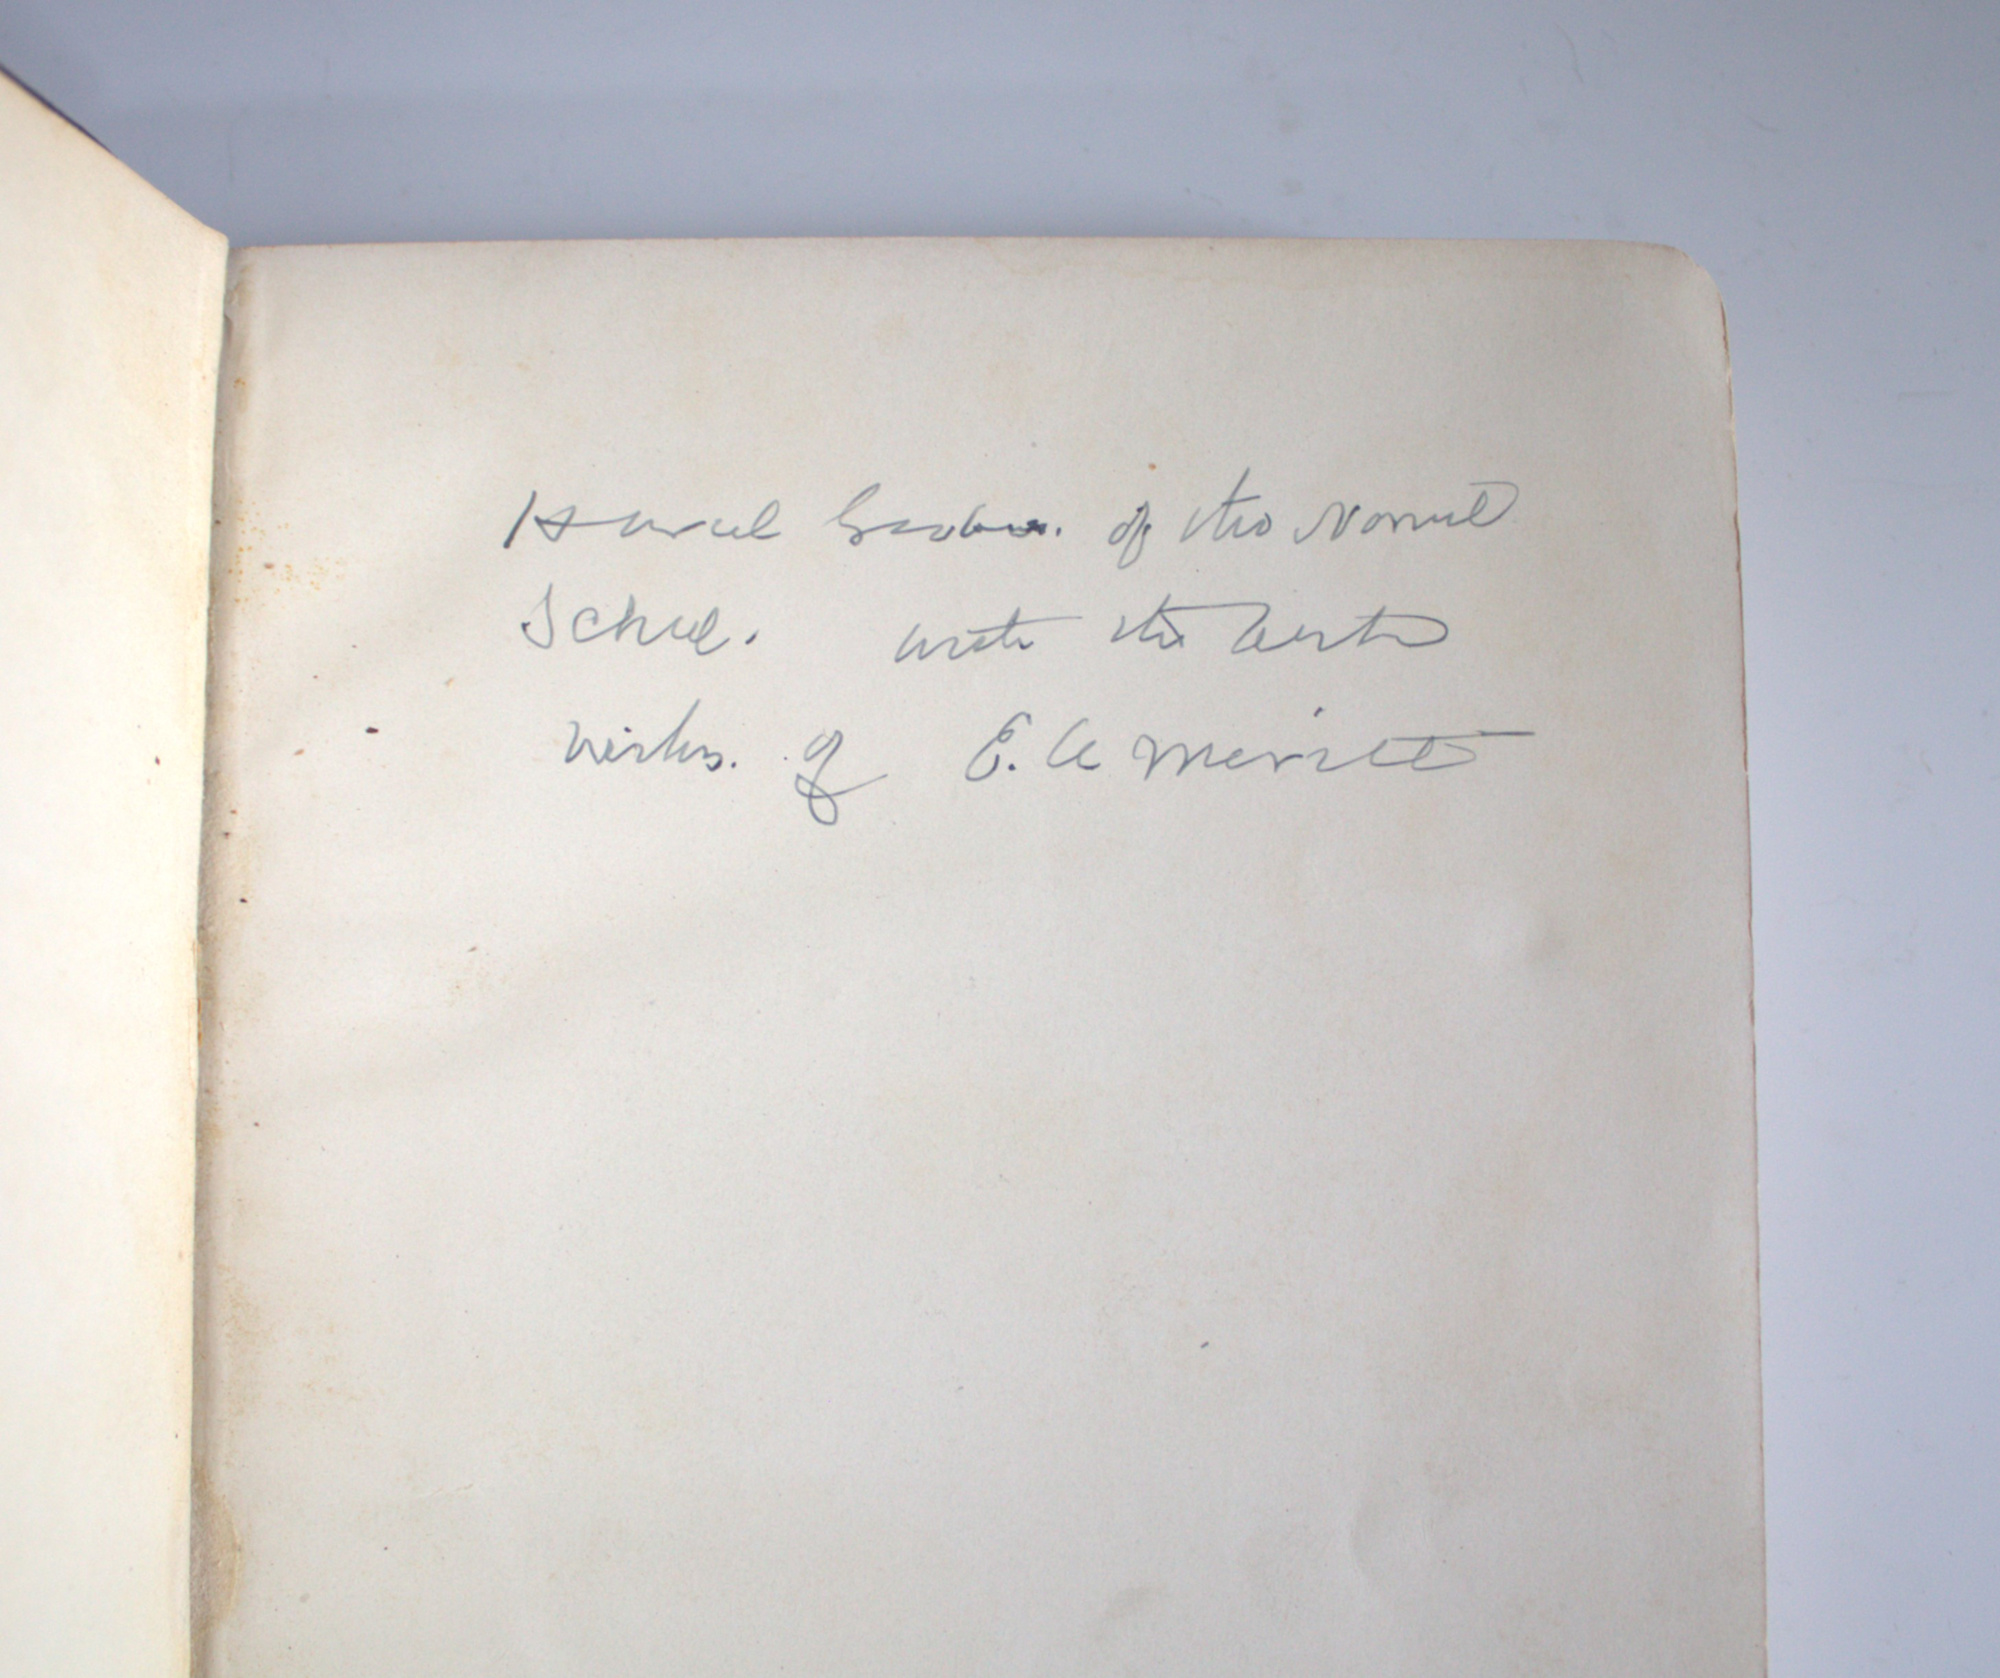 of the Normal
School. with the best
wishes. of E. A Merritt